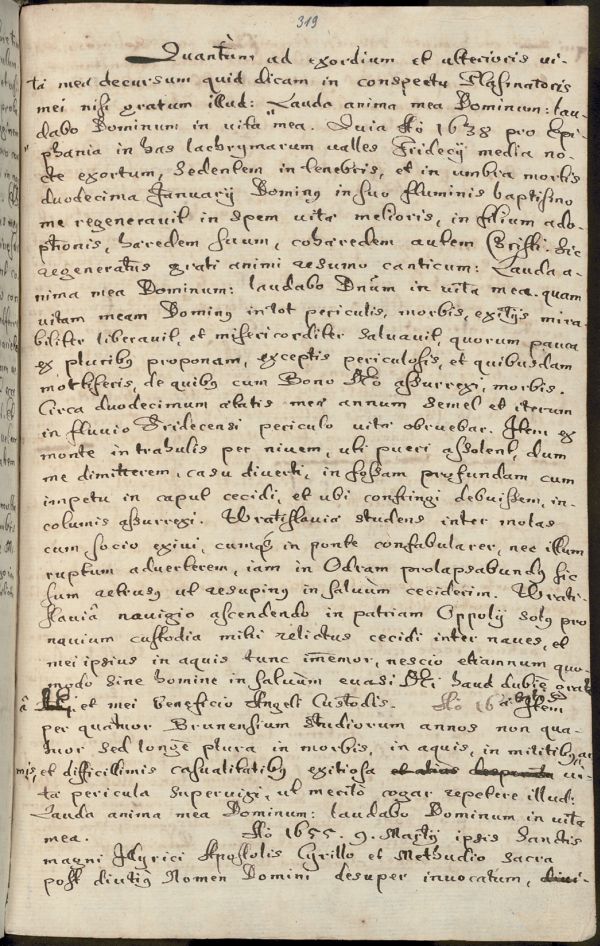 319
Quantum ad exordium et ulterioris vi-
tæ meæ decursum quid dicam in conspectu Plasmatoris
mei nisi gratum illud: Lauda anima mea Dominum: lau-
dabo Dominum in vita mea. Quia Aō 1638 pro Epi-
phania in has lachrymarum valles Fridecij media no-
cte exortum, Sedentem in tenebris, et in umbra mortis
duodecima Januarij Dominus in suo fluminis baptismo
me regeneravit in spem vitæ melioris, in filium ado-
ptionis, hæredem suum, cohæredem autem Christi. Sic
regeneratus grati animi resumo canticum: Lauda a-
nima mea Dominum: laudabo Dnūm in vita mea. quam
vitam meam Dominus in tot periculis, morbis, exitijs mira-
biliter liberavit, et misericorditer salvavit, quorum pauca
ex pluribus proponam, exceptis periculosis, et quibusdam
mortiferis, de quibus cum Bono Deo assurrexi, morbis.
Circa duodecimum ætatis meæ annum semel et iterum
in fluvio Fridecensi periculo vitæ obruebar. Item ex
monte in trahulis per nivem, uti pueri assolent, dum
me dimitterem, casu diverti, in fossam profundam cum
impetu in caput cecidi, et ubi confringi debuissem, in-
columis assurrexi. Wratislaviæ studens inter molas
cum socio exivi, cumque in ponte confabularer, nec illum
ruptum adverterem, iam in Odram prolapsabundus sic
sum retrusus ut resupinus in salvum ceciderim. Wrati-
slaviâ navigio ascendendo in patriam Oppolij solus pro
navium custodia mihi relictus cecidi inter naves, et
mei ipsius in aquis tunc immemor, nescio etiamnum quo-
modo sine homine in salvum evasi Dei haud dubiè
et mei beneficio Angeli Custodis. Aō 16 Item
per quatuor Brunensium studiorum annos non qua-
tuor sed longè plura in morbis, in aquis, in militibus, ar-
mis, et difficillimis casualitatibus exitiosa vi-
tæ pericula supervixi, ut meritò cogar repetere illud:
Lauda anima mea Dominum: laudabo Dominum in vita
mea. Aō 1655. 9. Martij ipsis Sanctis
magni Illyrici Apostolis Cyrillo et Methudio sacra
post diutius Nomen Domini desuper invocatum,